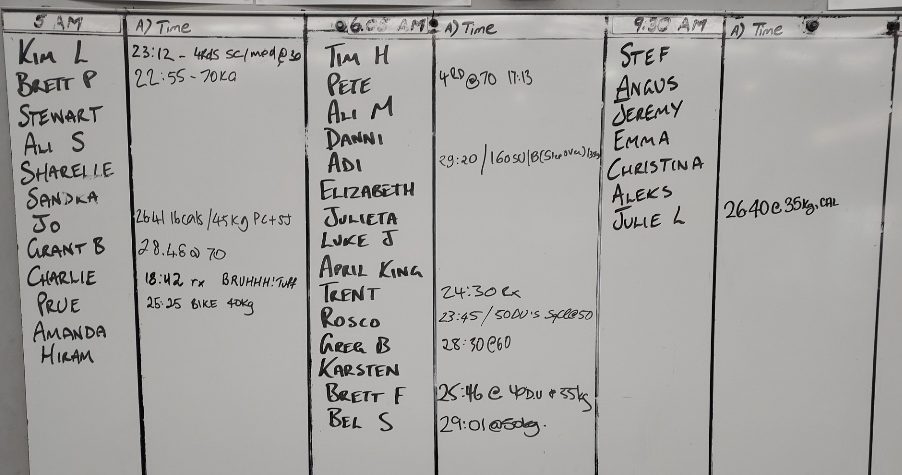 5 AM A) Time
KIM L 23:12 - 4RDS SC/mod@30
BRETT P 22:55 - 70KG
STEWART
ALI S
SHARELLE
SANDRA
JO 2641 16cals/45kg PC+SJ
GRANT B 28.46@70
CHARLIE 18:42 rx BRUHHH! Tuff
PRUE 25:25 BIKE 40kg
AMANDA
HIRAM
6.05 AM A) Time
TIM H
PETE 4RD@70 17:13
ALI M
DANNI
ADI 29:20/160SU/B(Step over)
ELIZABETH
JULIETA
LUKE J
APRIL KING
TRENT 24:30 Rx
ROSCO 23:45/50DU's @50
GREG B 28:30@60
KARSTEN
BRETT F 25:46 @ 40DU 35kg
BEL S 29:01@50kg.
9:30 AM A) Time
STEF
ANGUS
JEREMY
EMMA
CHRISTINA
ALEKS
JULIE L 2640@35kg.CAL